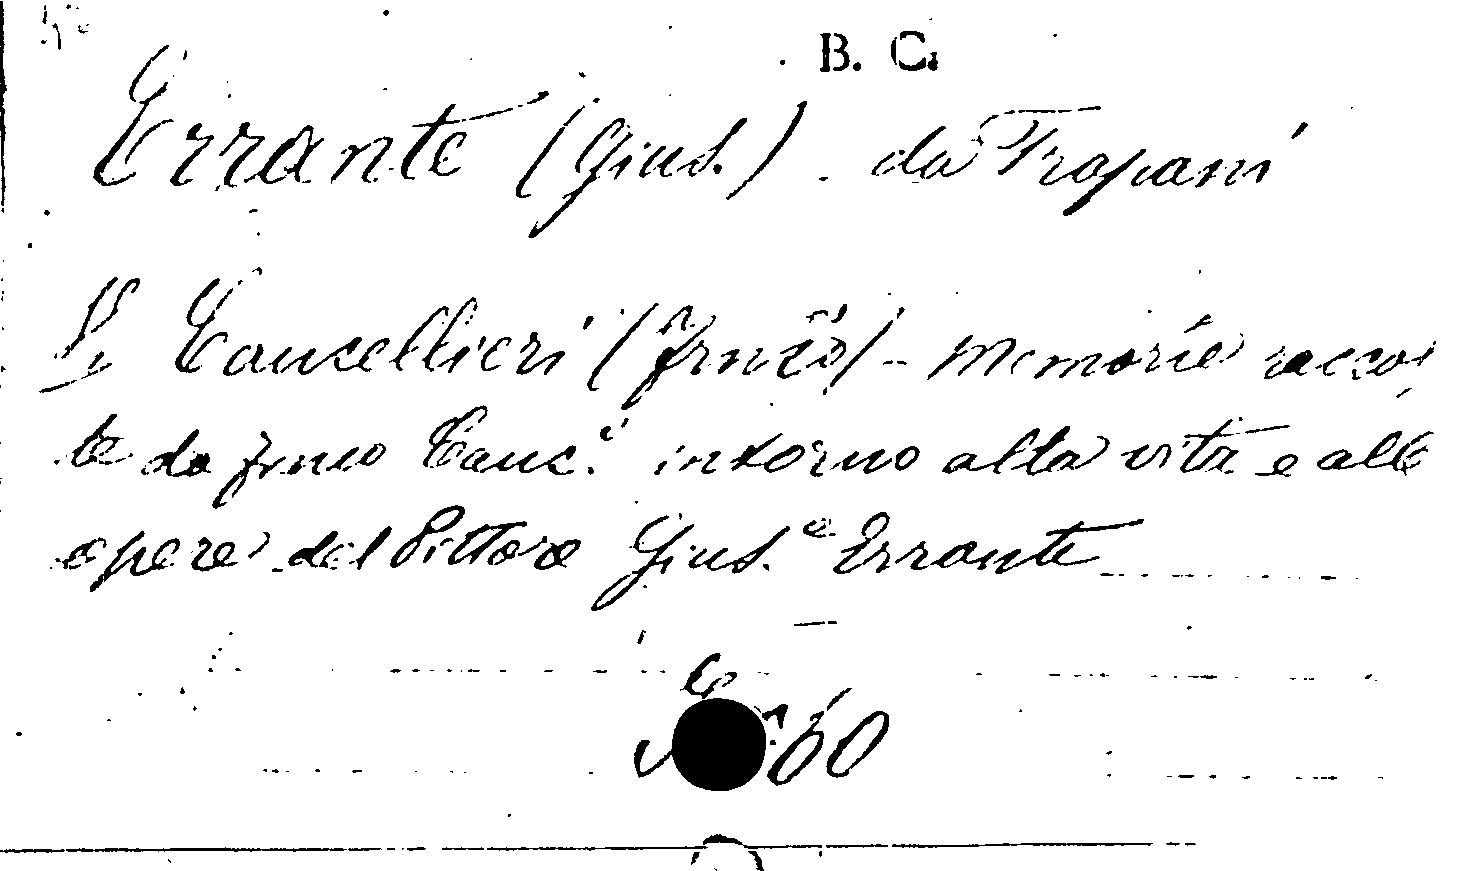 B. C.
Errante (Gius.) . da Trapani
V. Cancellieri (Frnco) - Memorie raccol
te da Frnco Canc.i intorno alla vita e alle
opere del Pittore Gius.e Errante
60